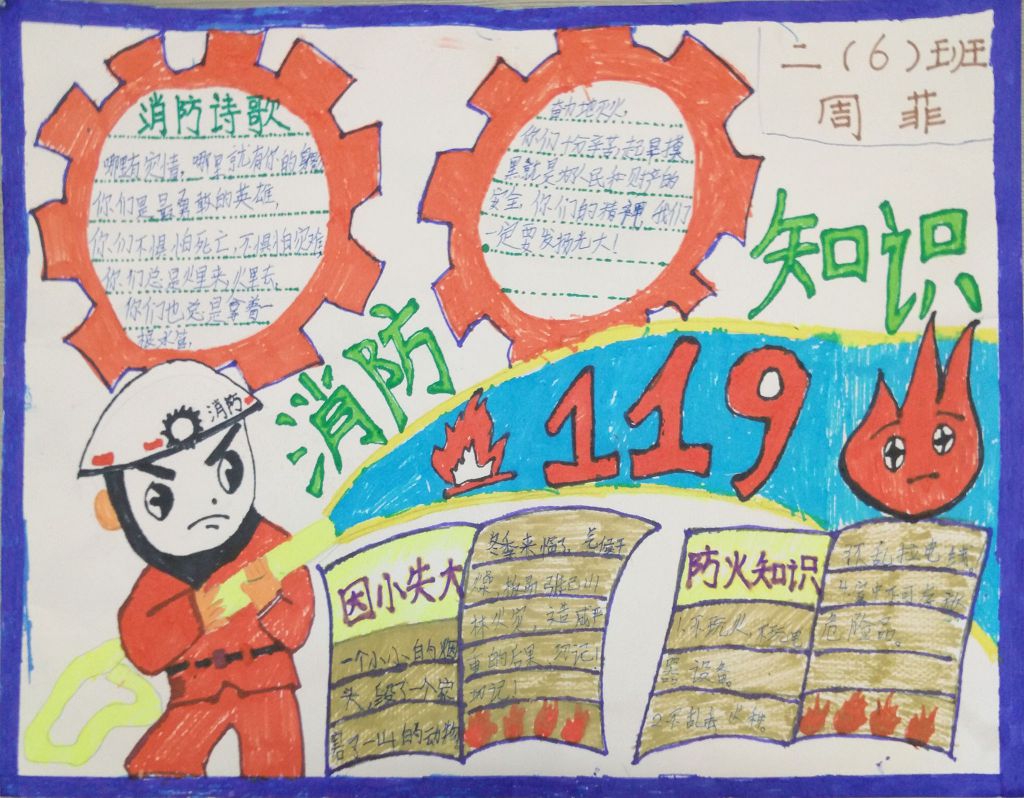 二(6)班
周菲
消防诗歌
哪里有灾情,哪里就有你的身影
你们是最勇敢的英雄,
你们不惧怕死亡,不惧怕灾难
你们总是火里来,火里去,
你们也总是拿着一
根水管,
奋力地灭火,
你们十分辛苦,起早摸
黑就是为人民和财产的
安全,你们的精神,我们
一定要发扬光大!
消防
知识
消防
119
因小失大
一个小小的烟
头,毁了一个家
害了一山的动物
冬季来临了,气候干
燥,极易引起山
林火灾,造成严
重的后果,切记!
切记!
防火知识
1.不玩火,不玩电
器设备。
2.不乱丢
不乱拉电线
危险品。